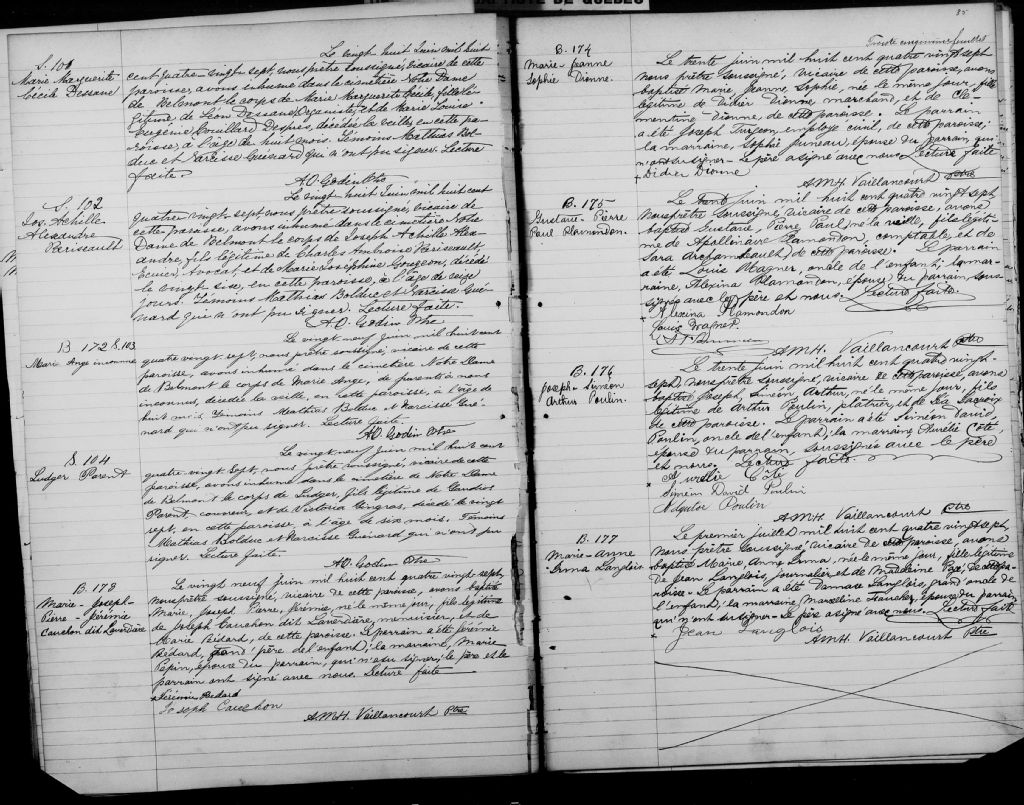 BAPTISTE DE QUÉBEC
S. 101
Marie Marguerite
Cécile Dessane
Le vingt huit Juin mil huit
cent quatre-vingt sept, nous prêtre soussigné, vicaire de cette
paroisse, avons inhumé dans le cimetière Notre Dame
de Belmont le corps de Marie Marguerite Cécile, fille lé-
gitime de Léon Dessane, Organiste, et de Marie Louise
Eugénie Couillard Després, décédée la veille, en cette pa-
roisse, à l'âge de huit mois. Témoins Mathias Bol-
duc et Narcisse Guenard qui n'ont pu signer. Lecture
faite.
A.O. Godin Ptre
S. 102
Jos. Achille
Alexandre
Parisault
Le vingt huit Juin mil huit cent
quatre vingt sept nous prêtre soussigné, vicaire de
cette paroisse, avons inhumé dans le cimetière Notre
Dame de Belmont le corps de Joseph Achille Alex-
andre, fils légitime de Charles Ambroise Parisault,
Ecuier, Avocat, et de Marie Josephine Gougeon, décédé
le vingt six, en cette paroisse, à l'âge de seize
jours. Témoins Mathias Bolduc et Narcisse Gué-
nard qui n'ont pu signer. Lecture faite.
A.O. Godin Ptre.
B 172 S. 103
Marie Ange inconnue
Le vingt neuf juin mil huit cent
quatre vingt sept, nous prêtre soussigné, vicaire de cette
paroisse, avons inhumé dans le cimetière Notre Dame
de Belmont le corps de Marie Ange, de parents à nous
inconnus, décédée la veille, en cette paroisse, à l'âge de
huit mois. Témoins Mathias Bolduc et Narcisse Gué-
nard qui n'ont pu signer. Lecture faite.
A.O. Godin Ptre
S. 104
Ludger Parent
Le vingt neuf juin mil huit cent
quatre vingt sept, nous prêtre soussigné, vicaire de cette
paroisse, avons inhumé dans le cimetière de Notre Dame
de Belmont le corps de Ludger, fils légitime de
Parent, couvreur, et de Victoria Gingras, décédé le vingt
sept, en cette paroisse à l'âge de six mois. Témoins
Mathias Bolduc et Narcisse Guénard qui n'ont pu
signer. Lecture faite.
A.O. Godin Ptre
B. 173
Marie-Joseph-
Pierre-Jérémie
Cauchon dit Laverdière
Le vingt neuf juin mil huit cent quatre vingt sept,
nous prêtre soussigné, vicaire de cette paroisse, avons baptisé
Marie, Joseph Pierre, Jérémie, né le même jour, fils légitime
de Joseph Cauchon dit Laverdière, menuisier, et de
Marie Bédard, de cette paroisse. Le parrain a été Jérémie
Bédard, grand père de l'enfant; la marraine, Marie
Pepin, épouse du parrain, qui n'a su signer; le père et le
parrain ont signé avec nous. Lecture faite
Jérémie Bedard
Joseph Cauchon
A.M.H. Vaillancourt Ptre
35
Trente cinquième feuillet
B. 174
Marie-Jeanne
Sophie Dionne.
Le trente juin mil huit cent quatre vingt sept
nous prêtre soussigné, vicaire de cette paroisse, avons
baptisé Marie, Jeanne, Sophie, née le même jour, fille
légitime de Didier Dionne, marchand, et de Clé-
mentine Dionne, de cette paroisse. Le parrain
a été Joseph Turgeon, employé civil, de cette paroisse;
la marraine, Sophie Juneau, épouse du parrain, qui
n'a su signer- Le père a signé avec nous. Lecture faite
Didier Dionne
A.M.H. Vaillancourt Ptre
B. 175
Gustave-Pierre
Paul Plamondon.
Le trente juin mil huit cent quatre vingt sept
nous prêtre soussigné, vicaire de cette paroisse, avons
baptisé Gustave, Pierre Paul, né la veille, fils légiti-
me de Apollinaire Plamondon, comptable, et de
Sara Archambeault, de cette paroisse. Le parrain
a été Louis Wagner, oncle de l'enfant; la mar-
raine, Alexina Plamondon, épouse du parrain, sous-
signés avec le père et nous. Lecture faite.
Alexina Plamondon
Louis Wagner.
A.M.H. Vaillancourt Ptre
B. 176
Joseph-Siméon
Arthur Poulin.
Le trente juin mil huit cent quatre vingt-
sept, nous prêtre soussigné, vicaire de cette paroisse, avons
baptisé Joseph, Siméon Arthur, né le même jour, fils
légitime de Arthur Poulin, plâtrier, et de
de cette paroisse. Le parrain a été Siméon David,
Poulin, oncle de l'enfant; la marraine Aurélie Côté,
épouse du parrain soussignés avec le père
et nous. Lecture faite
Aurélie Côté
Siméon David Poulin
Poulin
A.M.H. Vaillancourt Ptre
B. 177
Marie-Anne
Irma Langlois
Le premier juillet mil huit cent quatre vingt sept,
nous prêtre soussigné, vicaire de cette paroisse, avons
baptisé Marie, Anne, Irma, née le même jour, fille légitime
de Jean Langlois, journalier, et de Madeleine de cette pa-
roisse- Le parrain a été Damase Langlois, grand oncle de
l'enfant; la marraine, Marceline Faucher, épouse du parrain
qui n'ont su signer- Le père a signé avec nous. Lecture faite
Jean Langlois
A.M.H. Vaillancourt Ptre